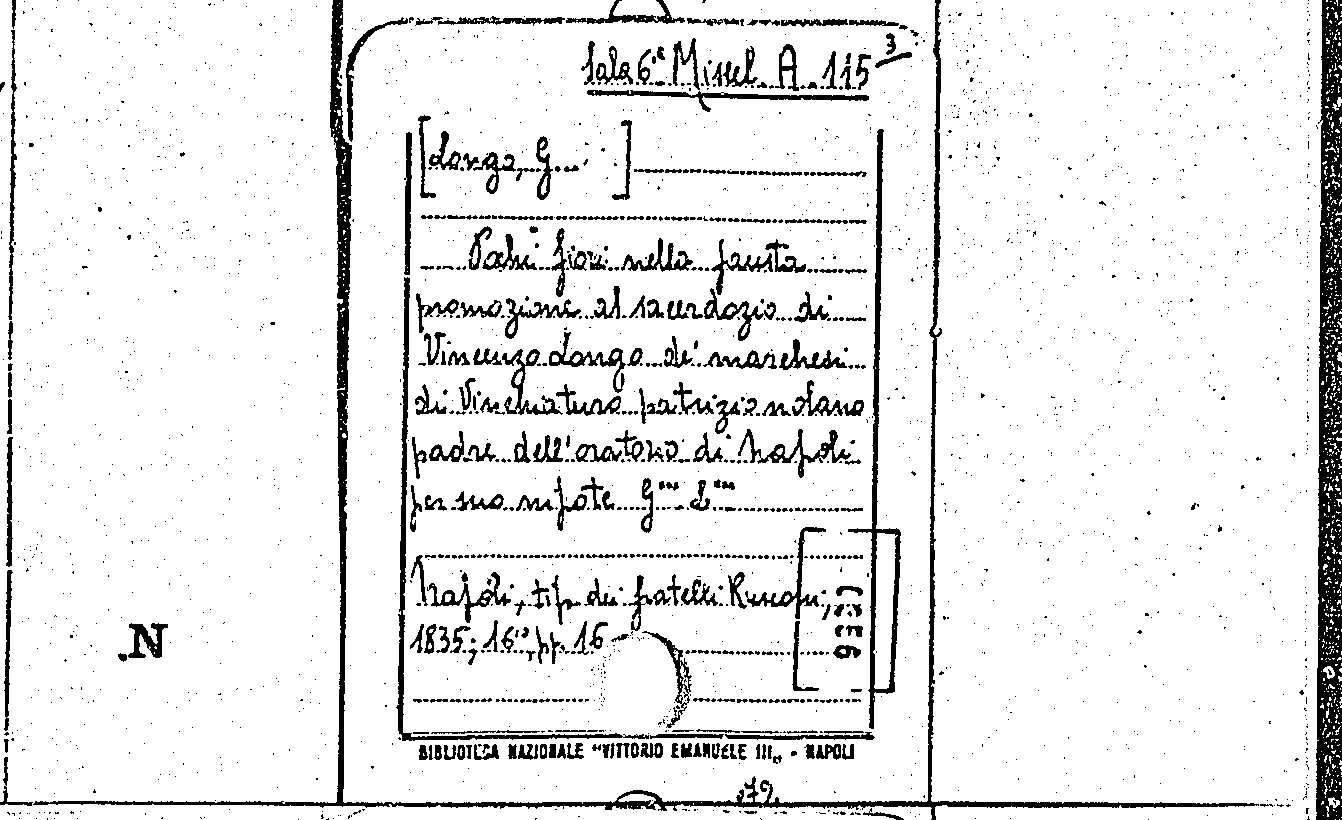 Sala 6.ª Miscel. A. 115 3
[Longo, G... ]
Pochi fiori nella fausta
promozione al sacerdozio di
Vincenzo Longo de' marchesi
di Vinchiaturo patrizio nolano
padre dell'oratorio di Napoli
per suo nipote G*** L***
Napoli, tip. dei fratelli Rusconi,
1835; 16°, pp. 16
BIBLIOTECA NAZIONALE "VITTORIO EMANUELE III„ - NAPOLI
N.
79.